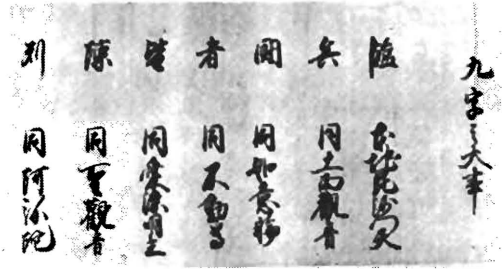 九字之大事
臨 本地毘沙門天
兵 同十一面觀音
鬪 同如意輪
者 同不動尊
皆 同愛染明王
陳 同聖觀音
列 同阿弥陀